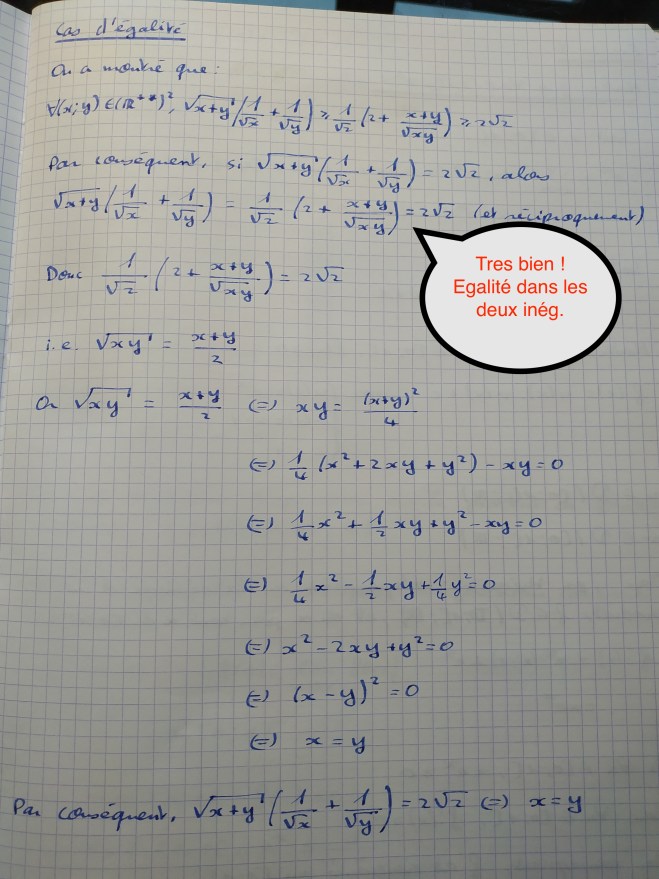 Cas d'égalité
On a montré que :
∀(x;y) ∈ (ℝ⁺*)², √(x+y) (1/√x + 1/√y) ≥ 1/√2 (2 + (x+y)/√(xy)) ≥ 2√2
Par conséquent, si √(x+y) (1/√x + 1/√y) = 2√2, alors
√(x+y) (1/√x + 1/√y) = 1/√2 (2 + (x+y)/√(xy)) = 2√2 (et réciproquement)
Tres bien !
Egalité dans les
deux inég.
Donc 1/√2 (2 + (x+y)/√(xy)) = 2√2
i.e. √(xy) = (x+y)/2
Or √(xy) = (x+y)/2 (=) xy = (x+y)²/4
(=) 1/4 (x² + 2xy + y²) - xy = 0
(=) 1/4 x² + 1/2 xy + y² - xy = 0
(=) 1/4 x² - 1/2 xy + 1/4 y² = 0
(=) x² - 2xy + y² = 0
(=) (x - y)² = 0
(=) x = y
Par conséquent, √(x+y) (1/√x + 1/√y) = 2√2 (=) x = y